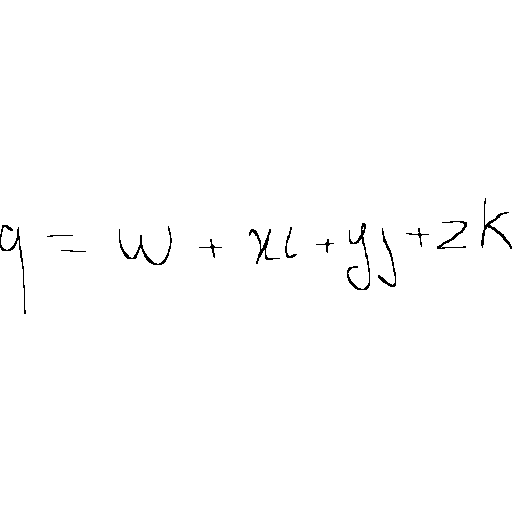 q = w + xi + yj + zk